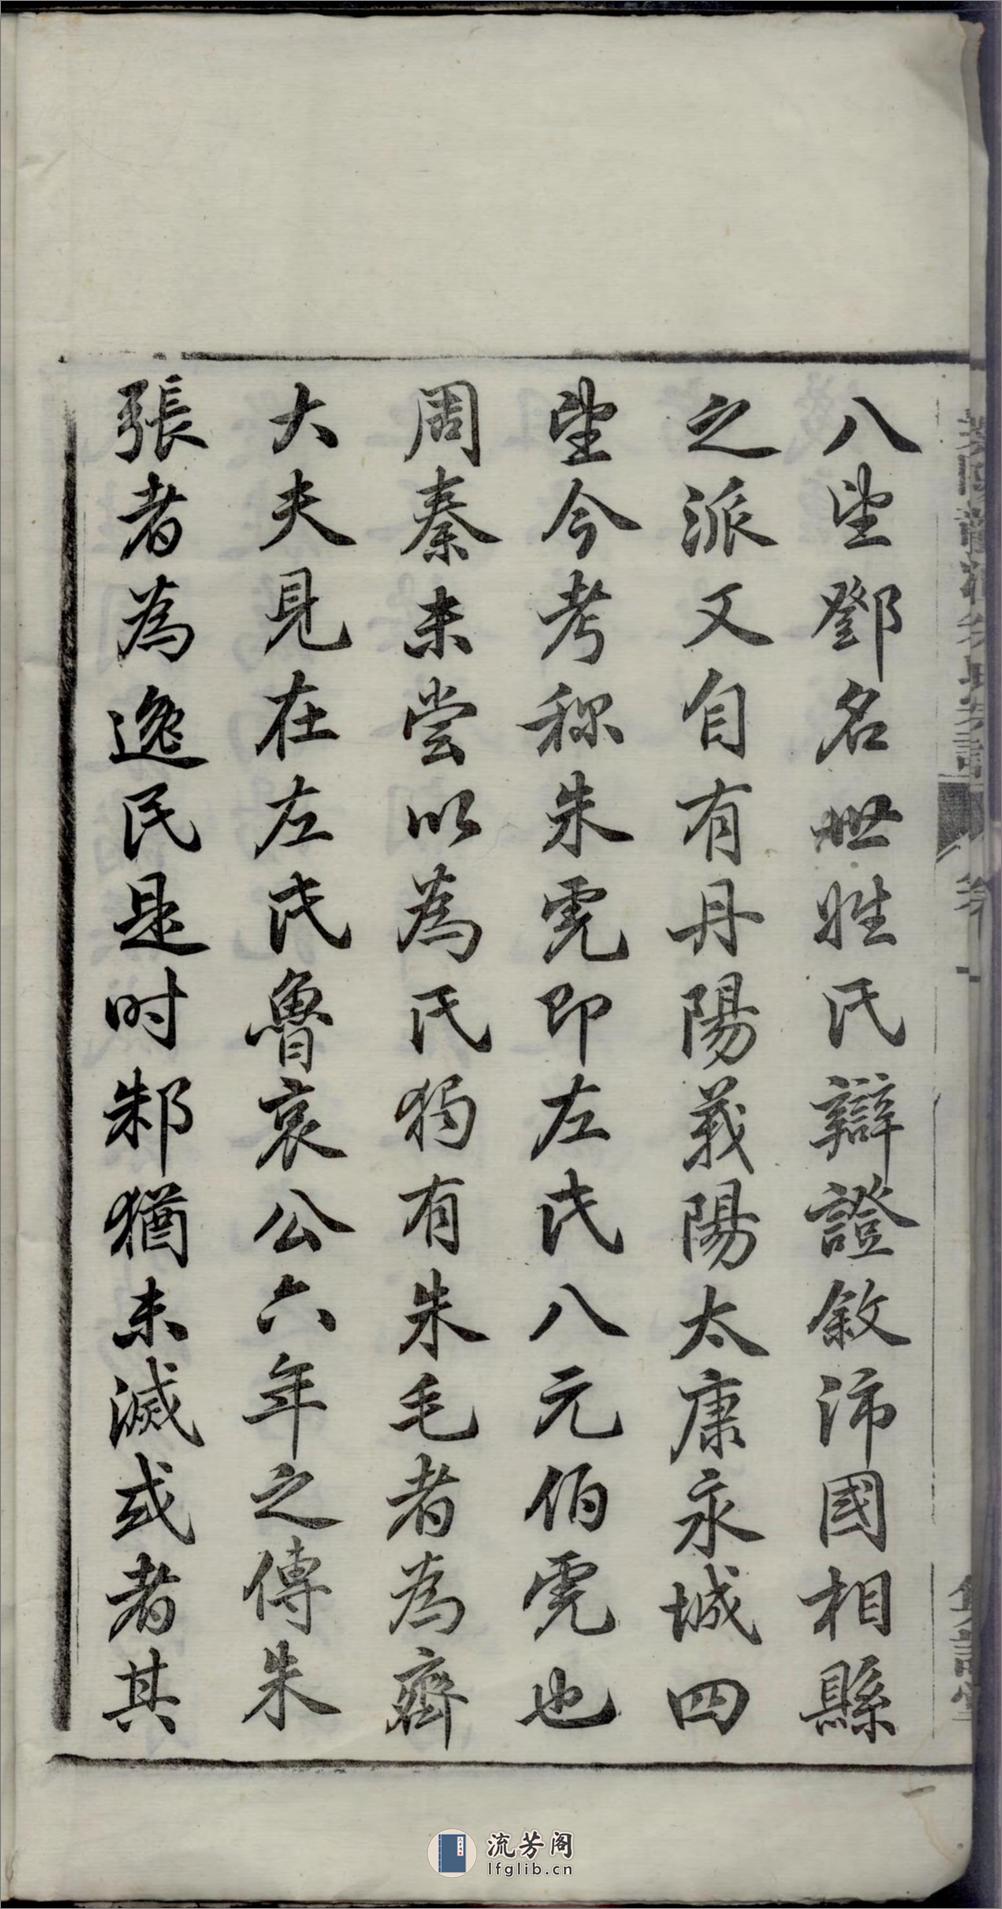 八望鄧名世姓氏辯證敘沛國相縣
之派又自有丹陽義陽太康永城四
望今考称朱虎即左氏八元伯虎也
周秦未尝以為氏獨有朱毛者為齊
大夫見在左氏魯哀公六年之傳朱
張者為逸民是时邾猶未滅或者其
流芳阁
lfglib.cn